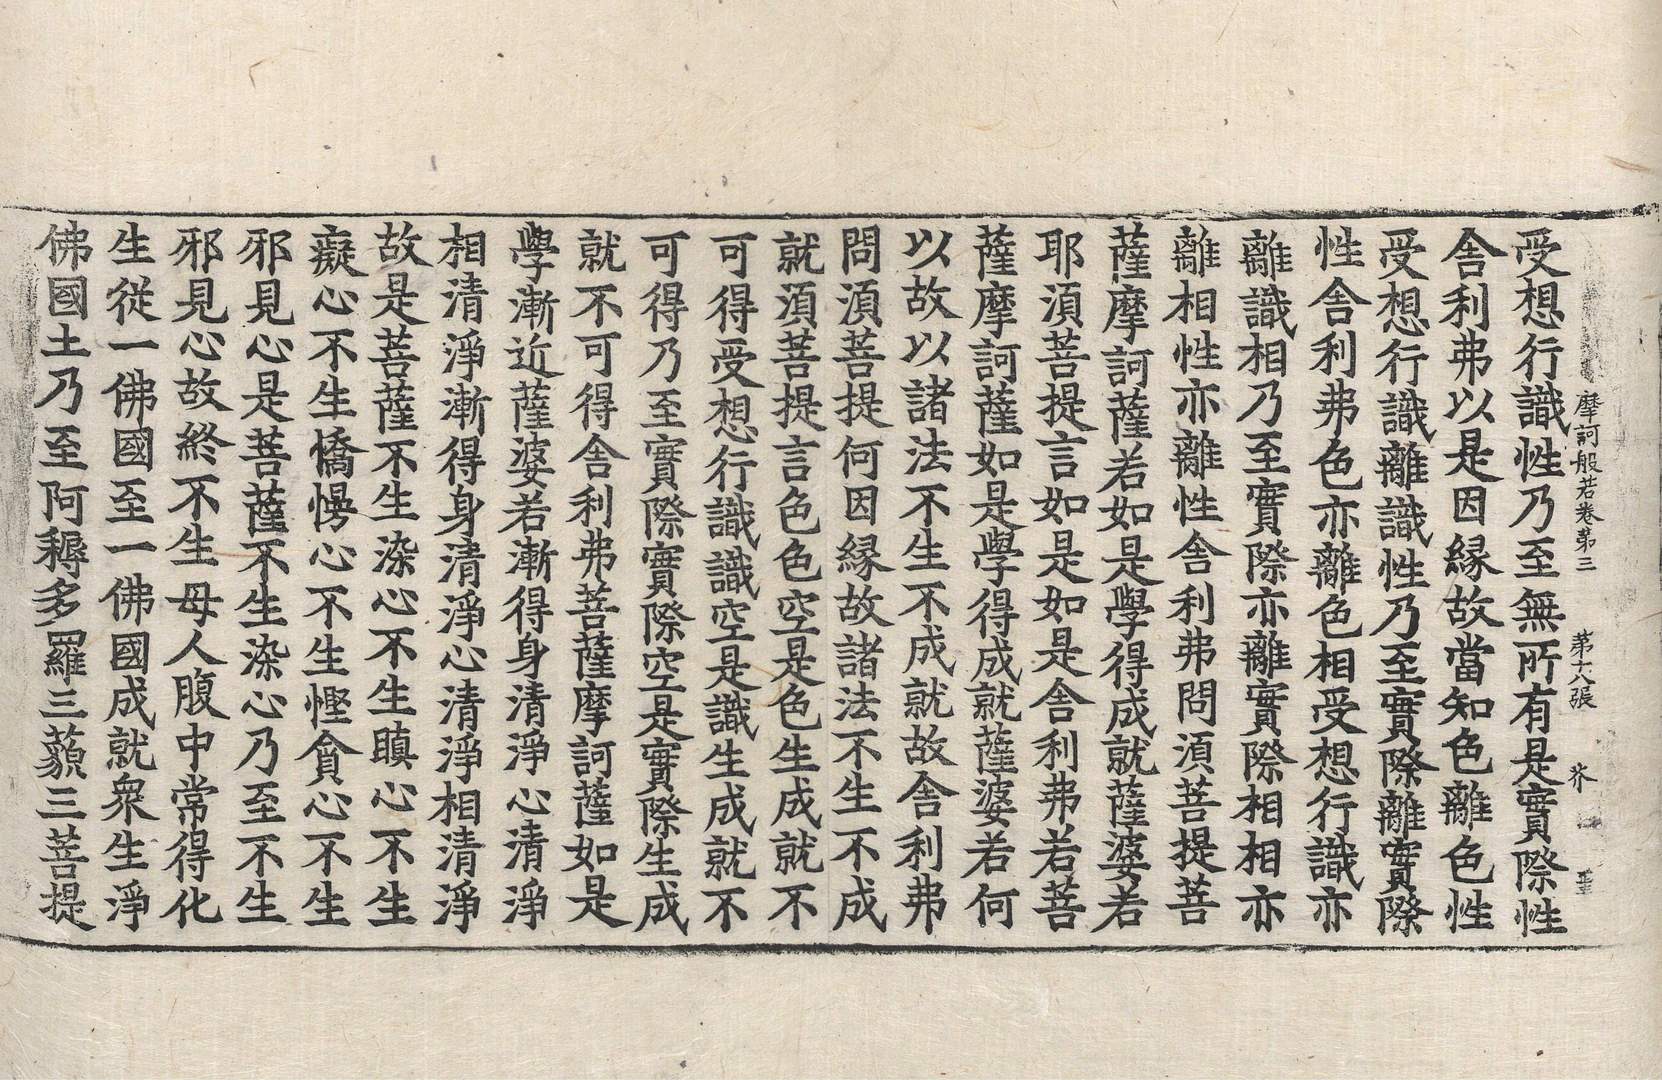 摩訶般若卷第三 第六張 芥
受想行識性乃至無所有是實際性
舍利弗以是因緣故當知色離色性
受想行識離識性乃至實際離實際
性舍利弗色亦離色相受想行識亦
離識相乃至實際亦離實際相相亦
離相性亦離性舍利弗問須菩提菩
薩摩訶薩若如是學得成就薩婆若
耶須菩提言如是如是舍利弗若菩
薩摩訶薩如是學得成就薩婆若何
以故以諸法不生不成就故舍利弗
問須菩提何因緣故諸法不生不成
就須菩提言色色空是色生成就不
可得受想行識識空是識生成就不
可得乃至實際實際空是實際生成
就不可得舍利弗菩薩摩訶薩如是
學漸近薩婆若漸得身清淨心清淨
相清淨漸得身清淨心清淨相清淨
故是菩薩不生染心不生瞋心不生
癡心不生憍慢心不生慳貪心不生
邪見心是菩薩不生染心乃至不生
邪見心故終不生母人腹中常得化
生從一佛國至一佛國成就衆生淨
佛國土乃至阿耨多羅三藐三菩提